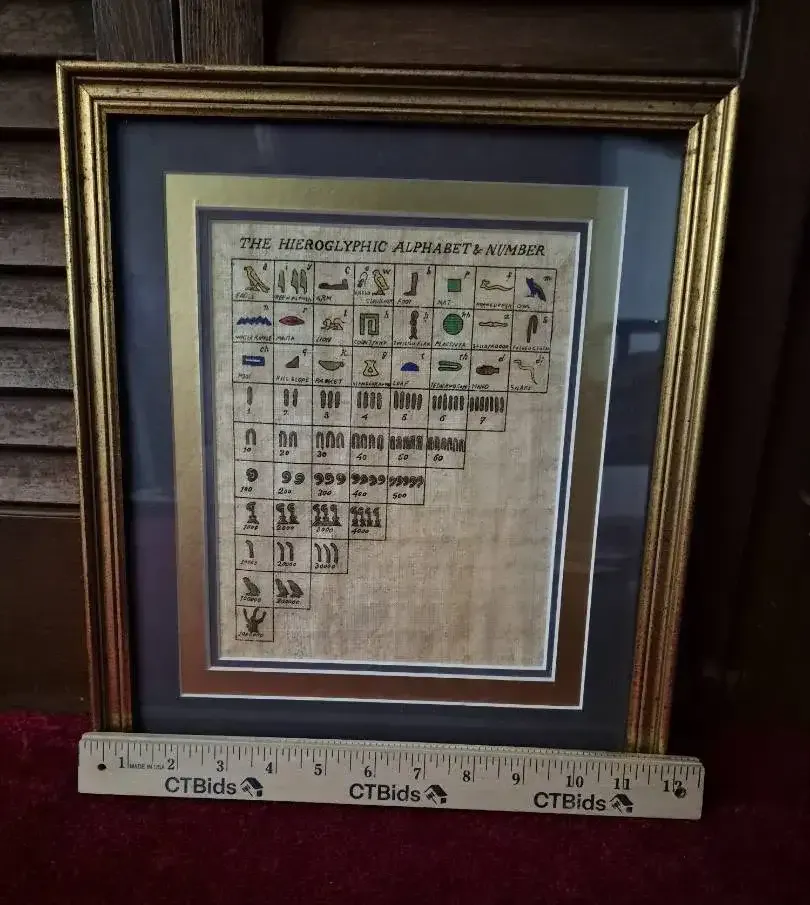 THE HIEROGLYPHIC ALPHABET & NUMBER
a y c w b p f m
EAGLE ARM FOOT MAT OWL
n r l h h kh s
WATER RIPPLE MOUTH LION PLACENTA
ch q k g t th d dj
POOL HILL SLOPE BASKET LOAF HAND SNAKE
1 2 3 4 5 6 7
10 20 30 40 50 60
100 200 300 400 500
1000 2000 3000 4000
10000 20000 30000
100000 200000
1000000
1 MADE IN USA 2 3 4 5 6 7 8 9 10 11 12
CTBids CTBids CTBids